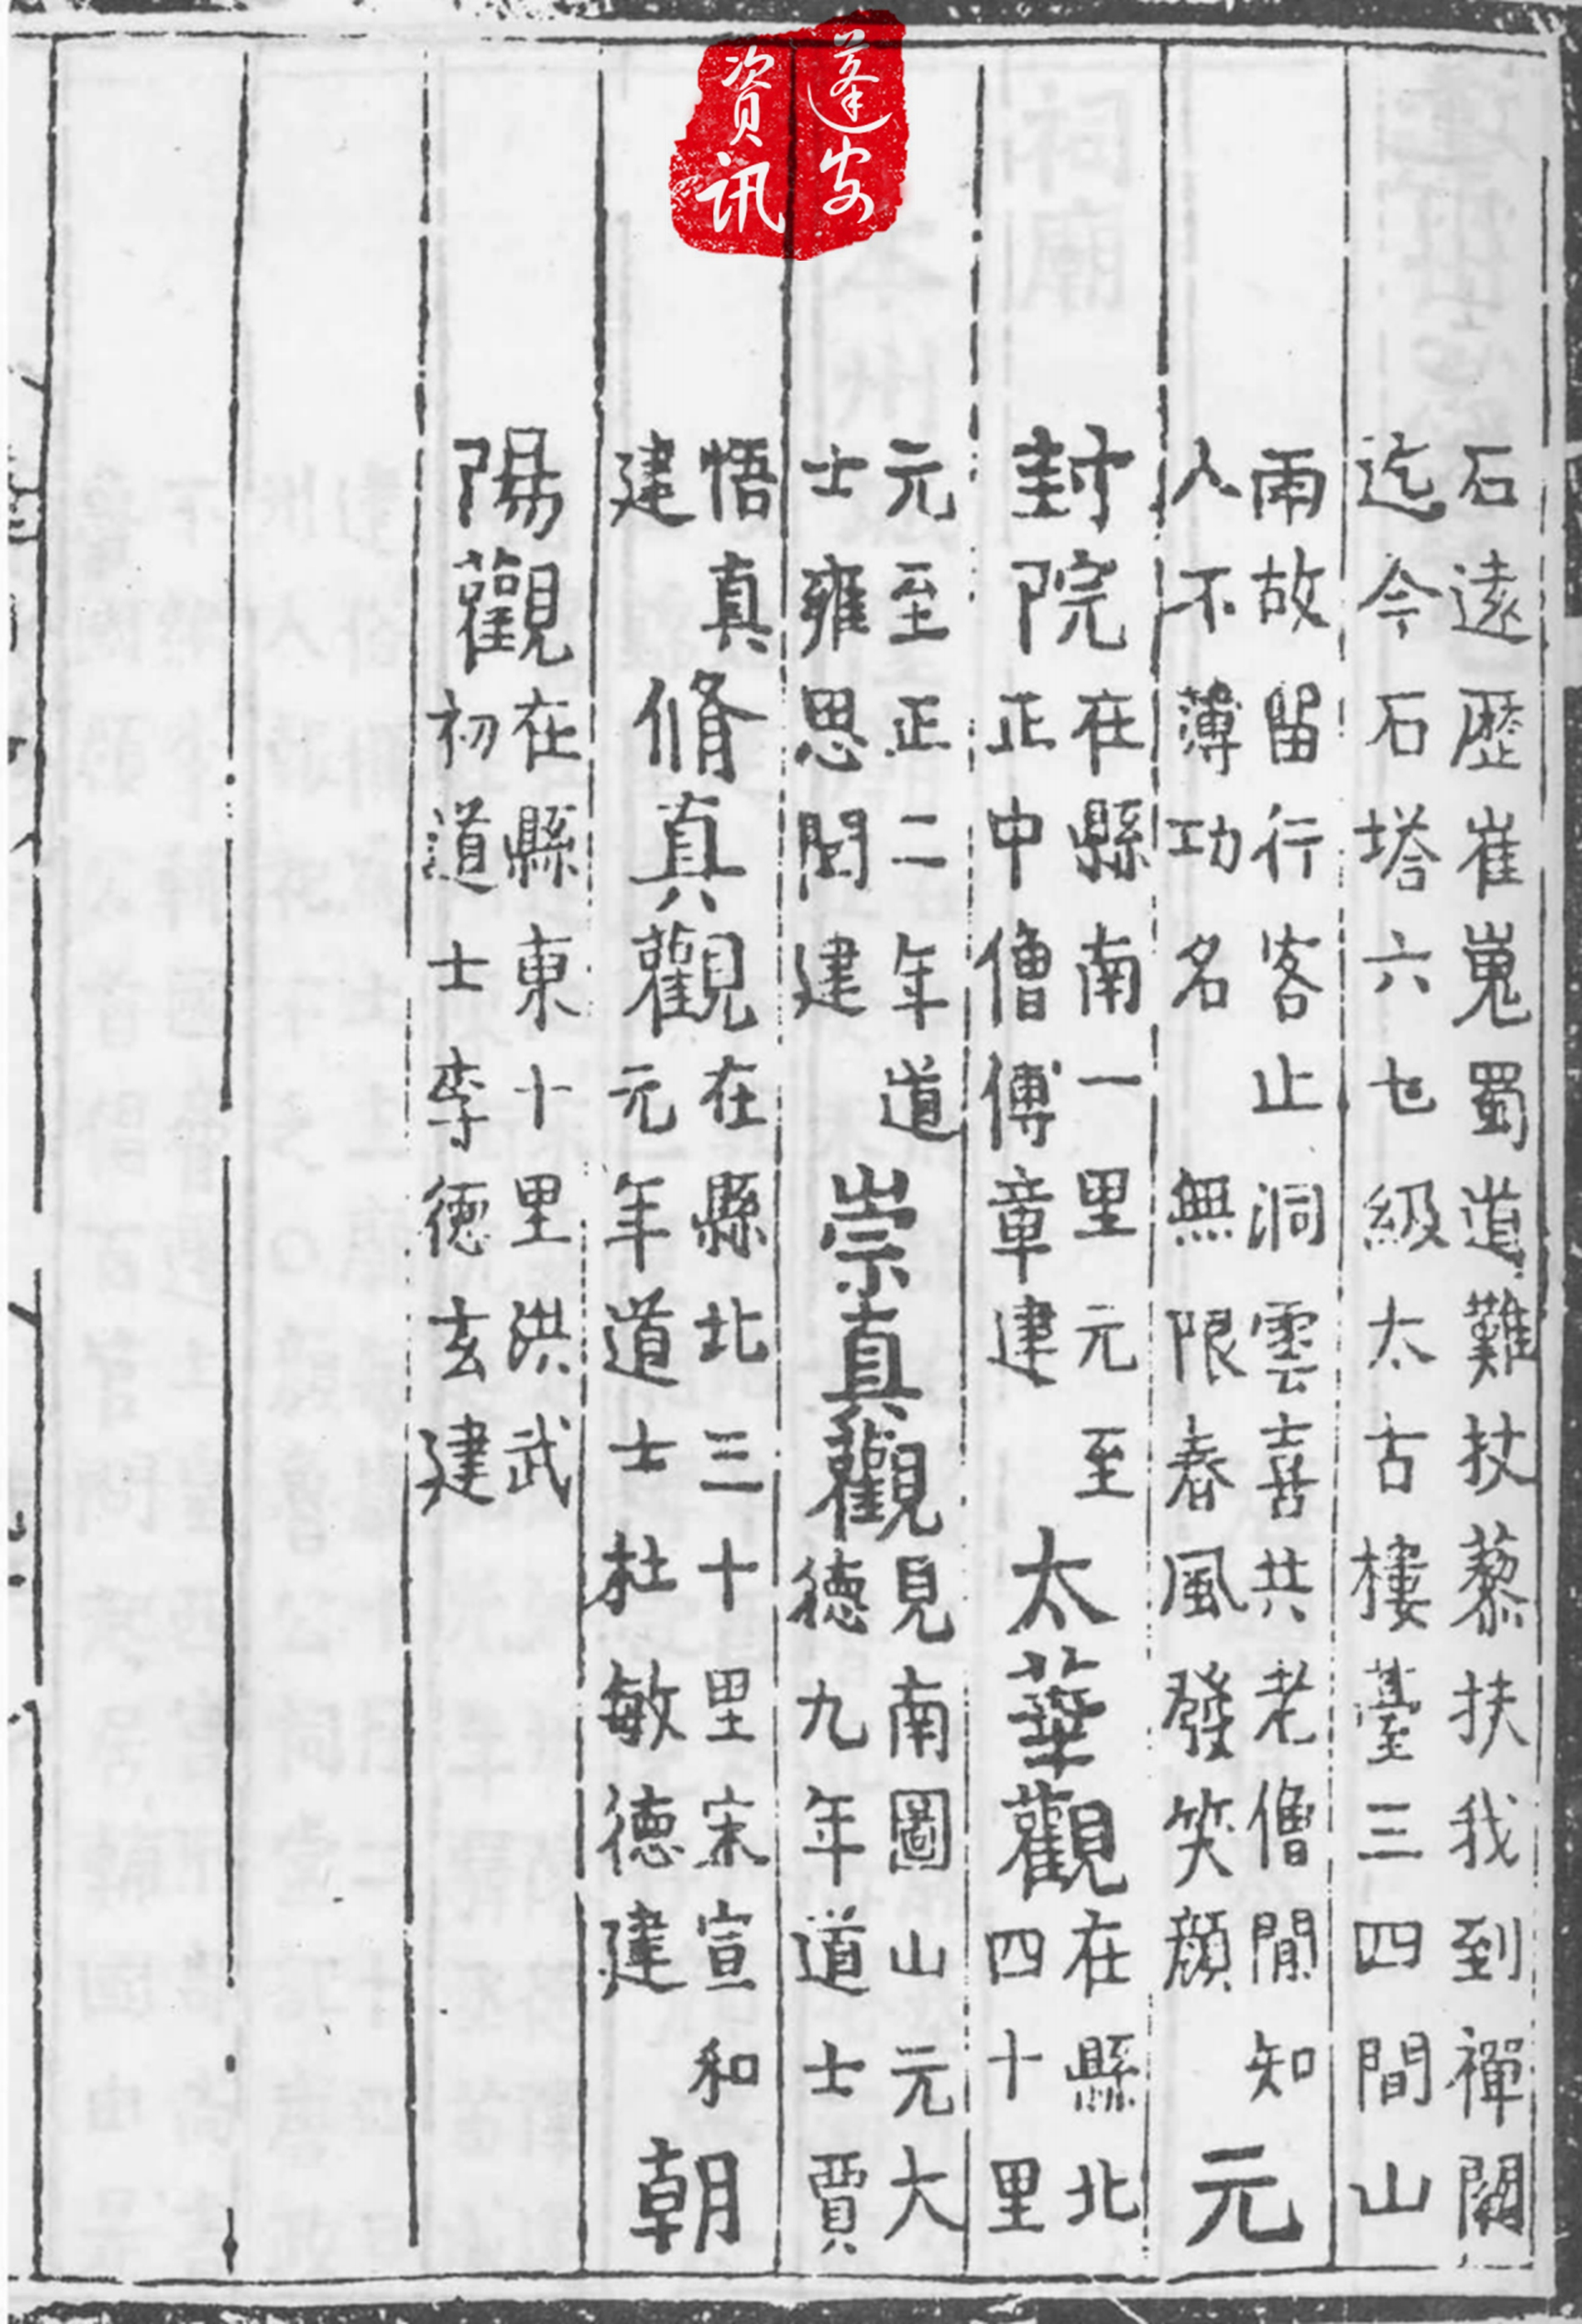 蓬安
资讯
石逺歷崔嵬蜀道難扙藜扶我到禪關
迄今石塔六七級太古樓臺三四間山
雨故留行客止洞雲喜共老僧閒知
人不薄功名無限春風發笑顔
元
封院
在縣南一里元至
正中僧傅章建
太華觀
在縣北
四十里
元至正二年道
士雍思閏建
崇真觀
見南圖山元大
德九年道士賈
悟真
建
脩真觀
在縣北三十里宋宣和
元年道士杜敏德建
朝
陽觀
在縣東十里洪武
初道士李德玄建